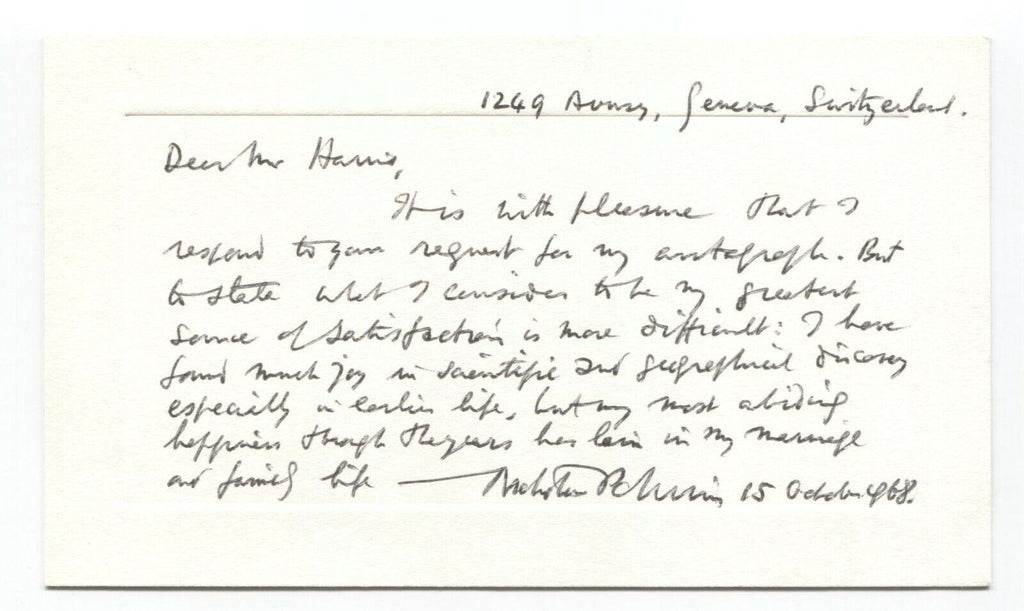 1249 Avusy, Geneva, Switzerland.
Dear Mr Harris,
It is with pleasure that I
respond to your request for my autograph. But
to state what I consider to be my greatest
source of satisfaction is more difficult: I have
found much joy in scientific and geographical discovery
especially in earlier life, but my most abiding
happiness through the years has lain in my marriage
and family life — Nicholas Polunin 15 October 1968.